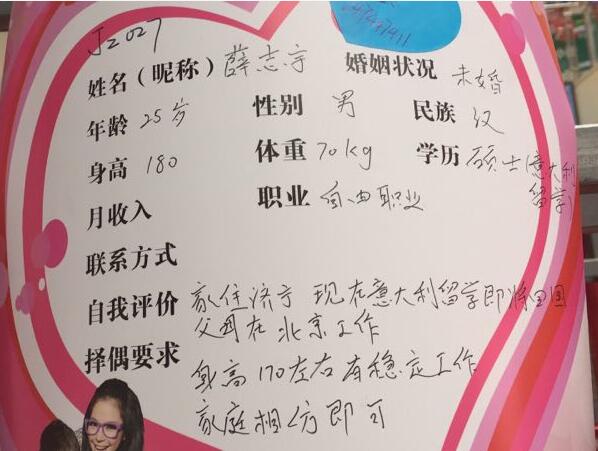 J2027
姓名（昵称）薛志宇 婚姻状况 未婚
年龄 25岁 性别 男 民族 汉
身高 180 体重 70kg 学历 硕士（意大利
留学）
月收入 职业 自由职业
联系方式
自我评价 家住济宁 现在意大利留学即将回国
父母在北京工作
择偶要求 身高170左右有稳定工作
家庭相仿即可